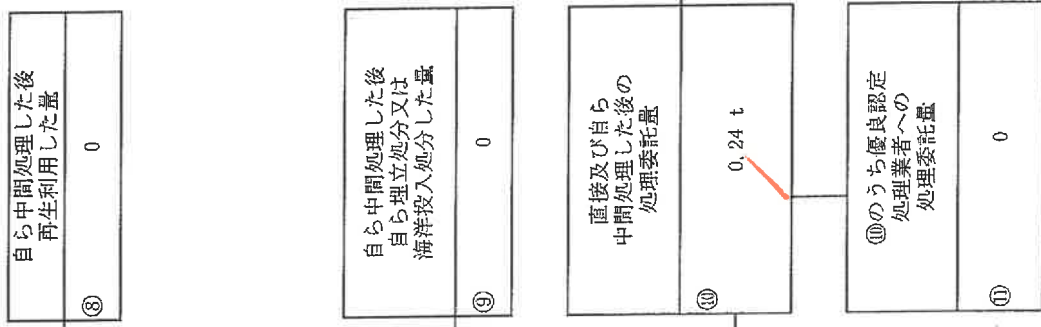 自ら中間処理した後
再生利用した量
⑧ 0
自ら中間処理した後
自ら埋立処分又は
海洋投入処分した量
⑨ 0
直接及び自ら
中間処理した後の
処理委託量
⑩ 0.24 t
⑩のうち優良認定
処理業者への
処理委託量
⑪ 0